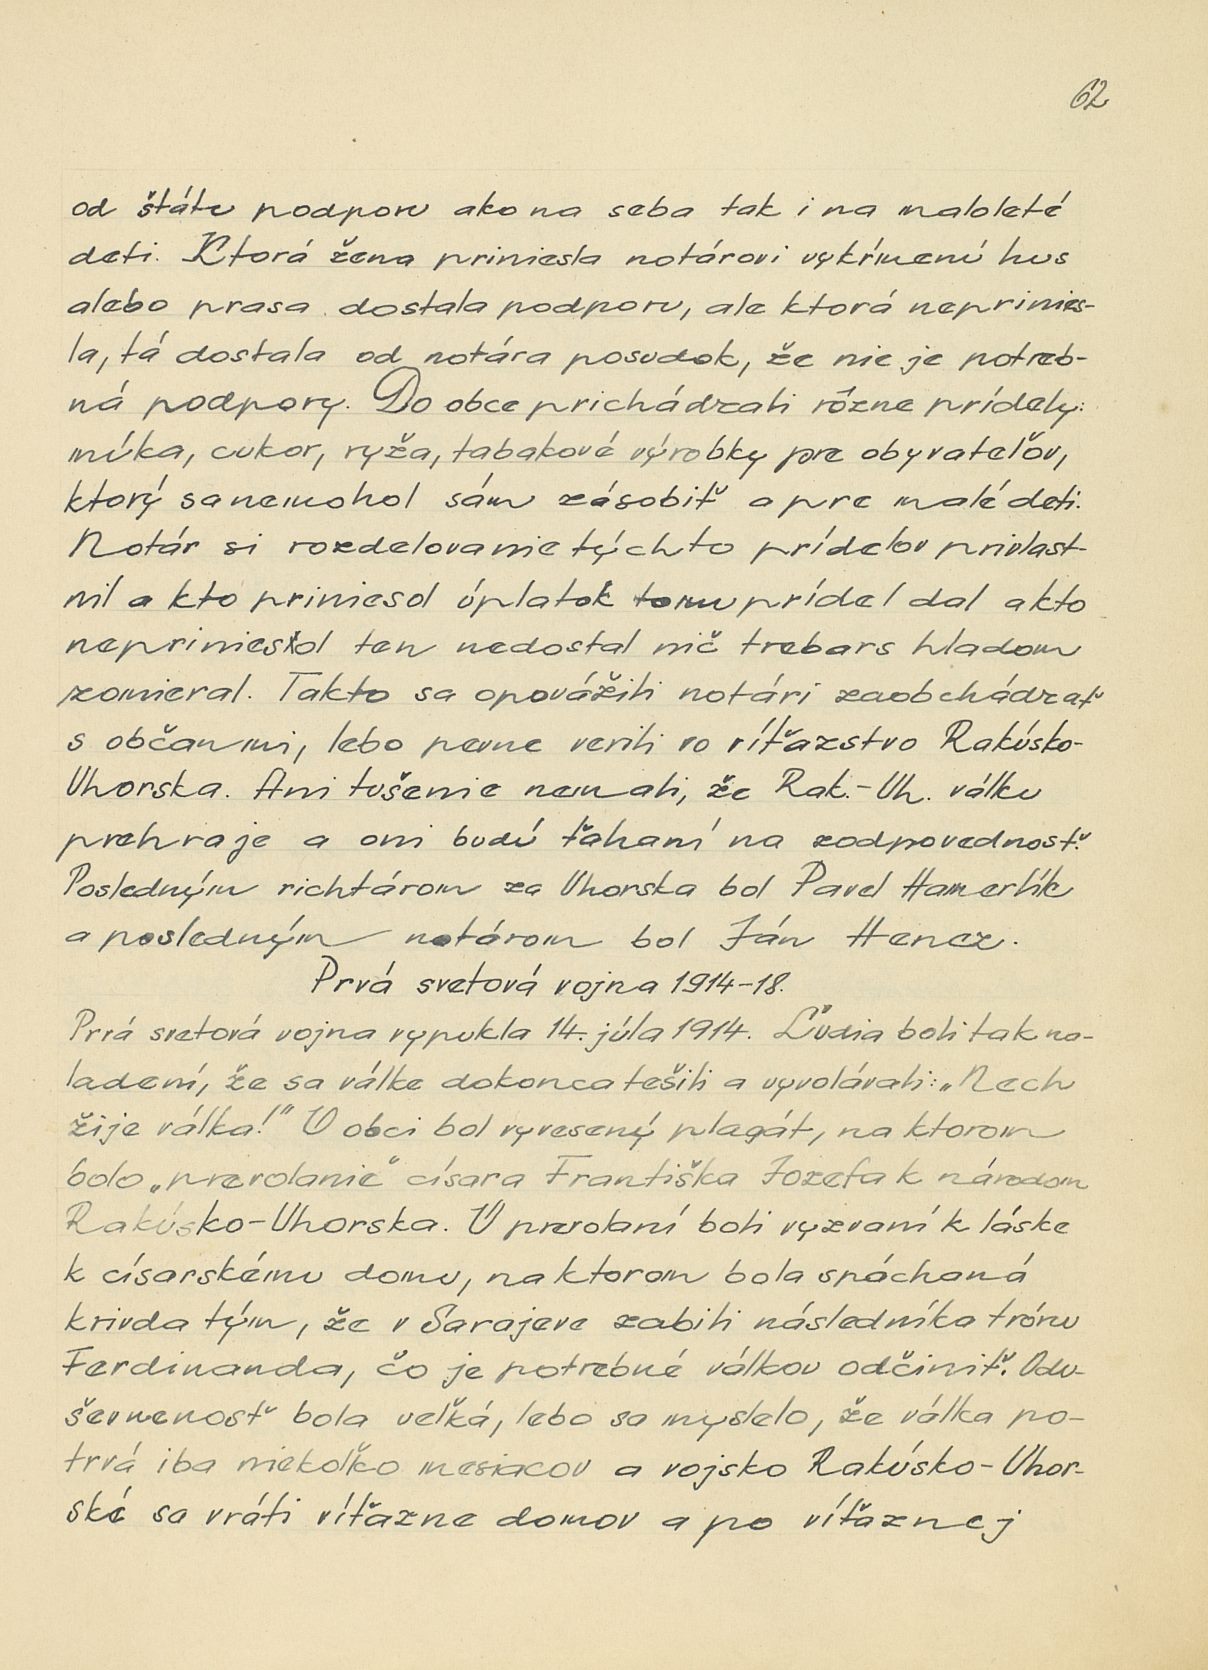 62
od štátu podporu ako na seba tak i na maloleté
deti. Ktorá žena priniesla notárovi vykŕmenú hus
alebo prasa dostala podporu, ale ktorá neprinies-
la, tá dostala od notára posudok, že nie je potreb-
ná podpory. Do obce prichádzali rôzne prídely:
múka, cukor, ryža, tabakové výrobky pre obyvateľov,
ktorý sa nemohol sám zásobiť a pre malé deti.
Notár si rozdelovanie týchto prídelov privlast-
nil a kto priniesol úplatok tomu prídel dal a kto
nepriniesol ten nedostal nič trebars hladom
zomieral. Takto sa opovážili notári zaobchádzať
s občanmi, lebo pevne verili vo víťazstvo Rakúsko-
Uhorska. Ani tušenie nemali, že Rak.-Uh. válku
prehraje a oni budú ťahaní na zodpovednosť.
Posledným richtárom za Uhorska bol Pavel Hamerlík
a posledným notárom bol Ján Hencz.
Prvá svetová vojna 1914-18.
Prvá svetová vojna vypukla 14. júla 1914. Ľudia boli tak na-
ladení, že sa válke dokonca tešili a vyvolávali: „Nech
žije válka!" V obci bol vyvesený plagát, na ktorom
bolo „prevolanie" císara Františka Jozefa k národom
Rakúsko-Uhorska. V prevolaní boli vyzvaní k láske
k císarskému domu, na ktorom bola spáchaná
krivda tým, že v Sarajeve zabili následníka trónu
Ferdinanda, čo je potrebné válkou odčiniť. Odu-
ševnenosť bola veľká, lebo sa myslelo, že válka po-
trvá iba niekoľko mesiacov a vojsko Rakúsko-Uhor-
ské sa vráti víťazne domov a po víťaznej